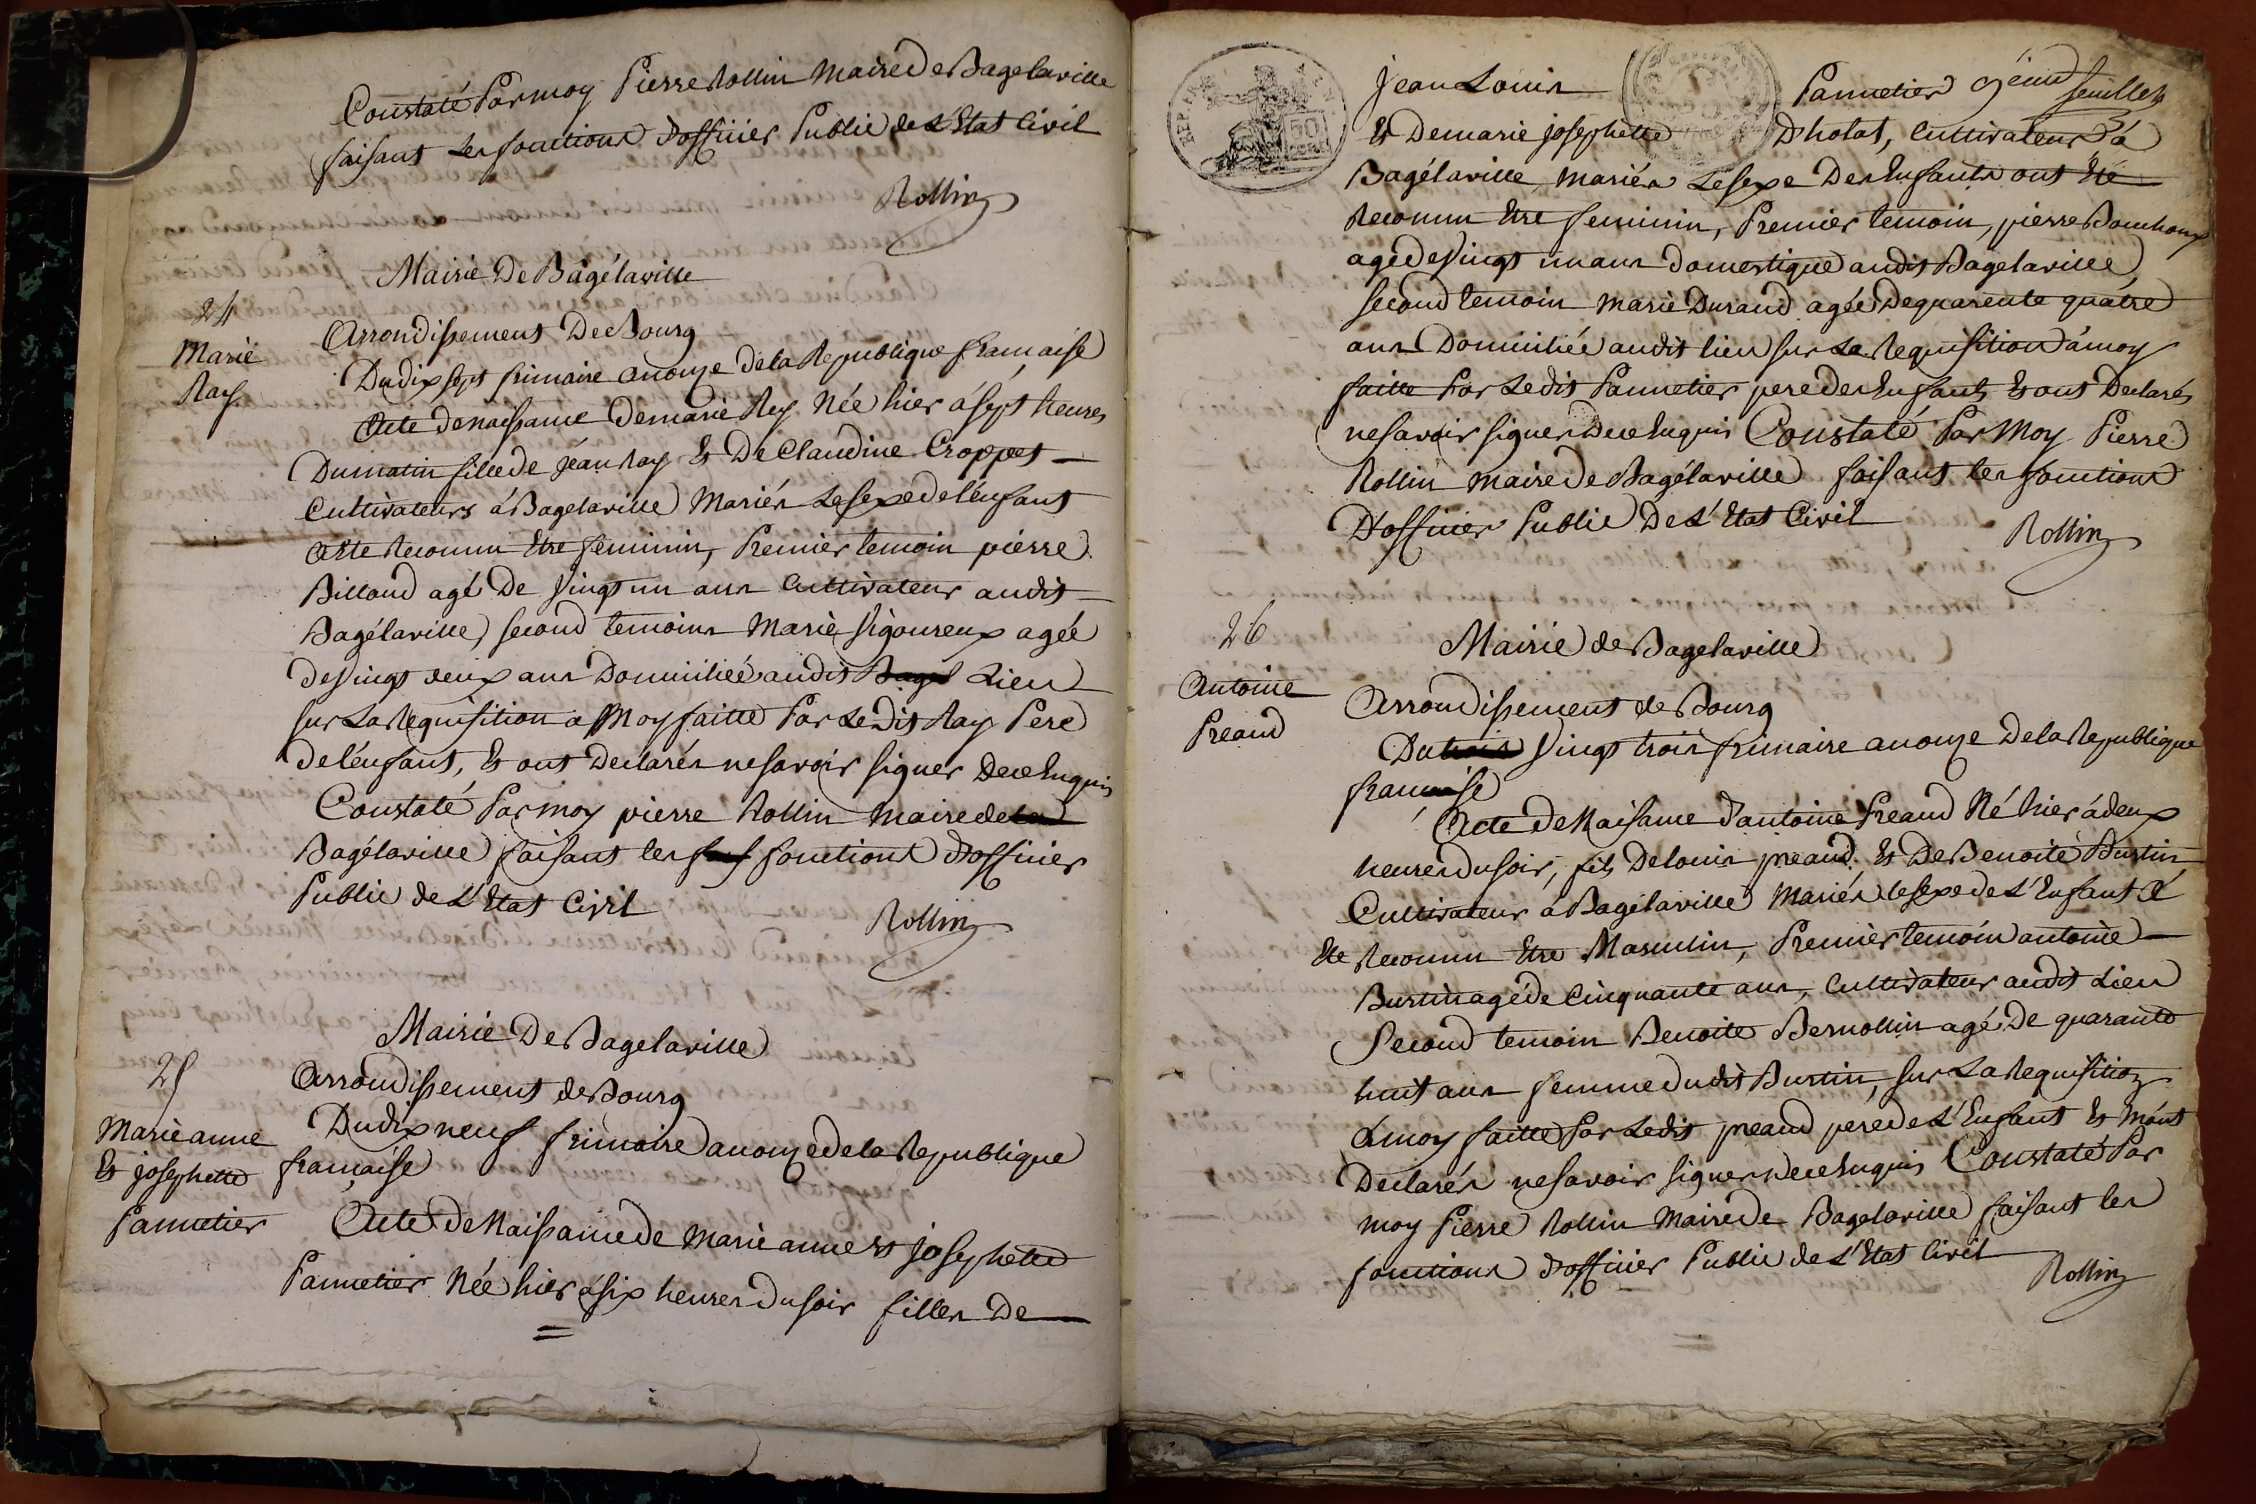 Constaté Par moy Pierre Rollin Maire De Bagelaville
faisant les fonctions d'officier Public de L'Etat Civil
Rollin
Mairie De Bagélaville
24
Marie
Ray
Arrondissement De Bourg
Du dix sept frimaire an onze de la Republique française
Acte de naissance de marie Rey Née hier à sept heures
Du matin fille de jean Ray Et De Claudine Croppet
Cultivateurs à Bagelaville Mariés Le sexe de l'enfant
a Ete Reconnu Etre feminin, Premier temoin pierre
Billoud agé De vingt un ans Cultivateur audit
Bagélaville, second temoins Marie Vigoureux agée
de vingt deux ans Domiciliée audit Bagel Lieu
sur La Requisition a Moy faitte Par Le Dit Ray Pere
de l'enfant, Et ont Declarés ne savoir signer De ce Enquis
Constaté Par moy pierre Rollin Maire de
Bagélaville faisant les fonctions D'officier
Public de L'Etat Civil
Rollin
Mairie De Bagelaville
25
Marie anne
Et josephette
Pannetier
Arrondissement de Bourg
Du dix neuf frimaire an onze de la Republique
française
Acte de Naissance de marie anne Et josephette
Pannetier Née hier à six heures du soir filles De
9eme feuillet
Jean Louis Pannetier
Et De marie josephette Dholat, Cultivateurs à
Bagélaville, mariés Le sexe Des Enfants ont Eté
Reconnu Etre feminin, Premier temoin, pierre
agé de vingt un ans Domestique audit Bagelaville,
second temoin Marie Durand agée De quarente quatre
ans Domiciliée audit lieu sur La Requisition à moy
faitte Par Le dit Pannetier pere des Enfants Et ont Declarés
ne savoir signer De ce Enquis Constaté Par Moy Pierre
Rollin maire de Bagélaville faisant les fonctions
D'officier Public De L'Etat Civil
Rollin
26
Antoine
Preaud
Mairie de Bagelaville
Arrondissement de Bourg
Du trois Vingt trois frimaire an onze De la Republique
française
Acte de Naisance d'antoine Preaud Né hier à deux
heures du soir, fils De louis preaud Et De Benoite Burtin
Cultivateurs à Bagélaville Mariés le sexe de L'Enfant à
Ete Reconnu Etre Masculin, Premier temoin antoine
Burtin agé de Cinquante ans, Cultivateur audit Lieu
Second temoin Benoite Bernollin agé De quarante
huit ans femme du dit Burtin, sur La Requisition
à moy faitte Par Le dit preaud pere de L'Enfant Et m'ont
Declarés ne savoir signer De ce Enquis Constaté Par
moy Pierre Rollin Maire de Bagelaville faisant les
fonctions d'officier Public de L'Etat Civil
Rollin